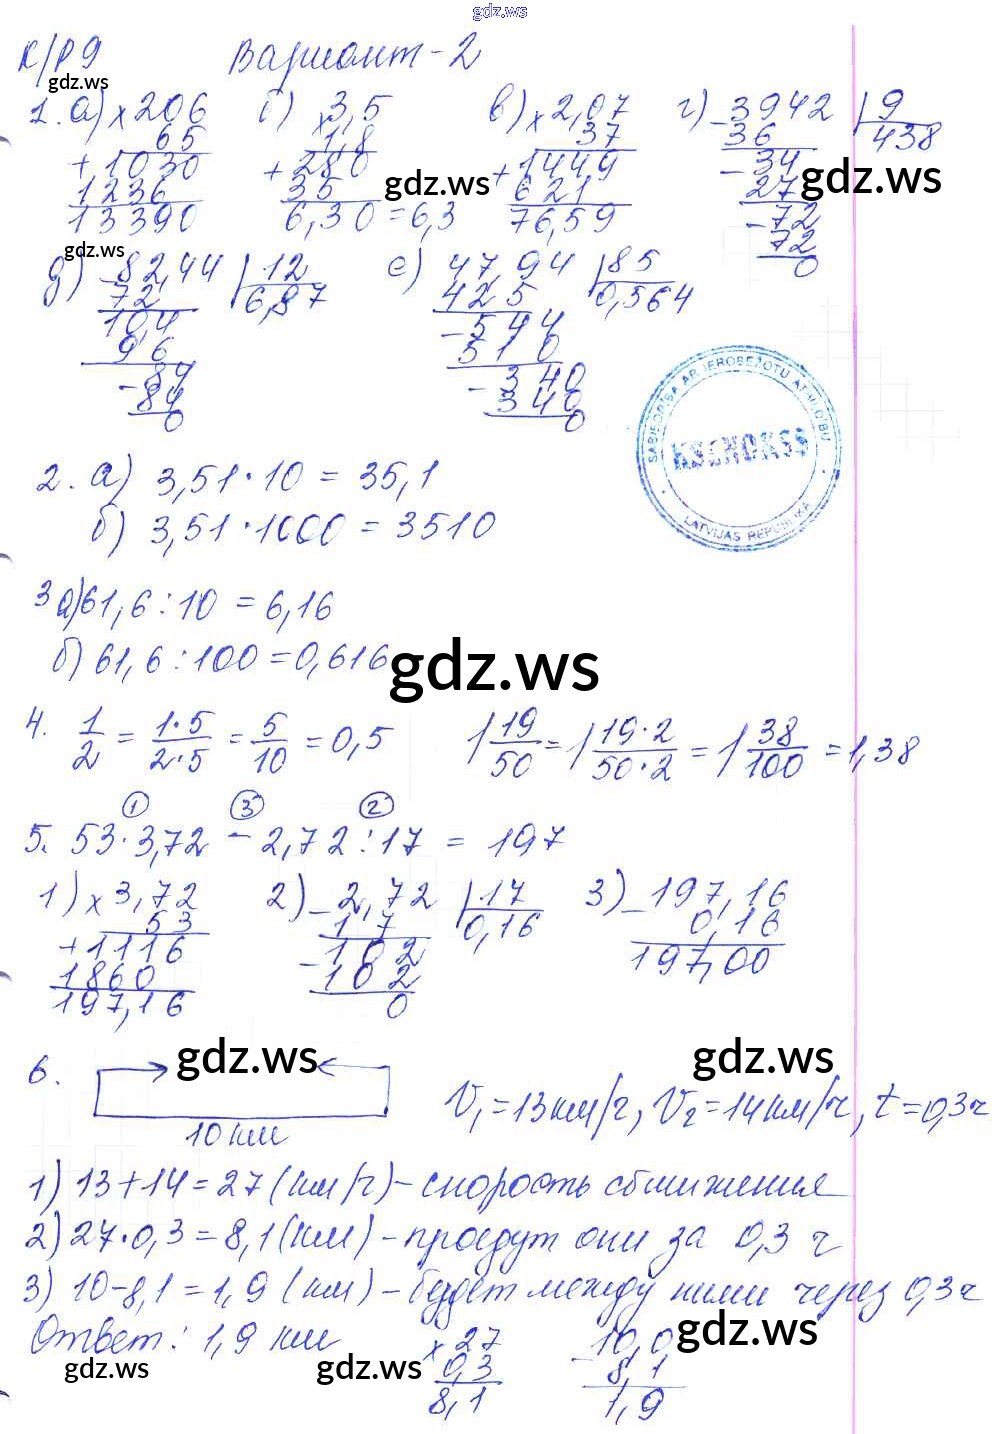 gdz.ws
К/Р 9 Вариант-2
gdz.ws
1. а) × 206 б) × 3,5 в) × 2,07 г) - 3942 | 9
65 1,8 37 36 438
+ 1030 + 280 + 1449 - 34
1236 35 621 27
13390 6,30 = 6,3 76,59 - 72
gdz.ws gdz.ws
72
0
gdz.ws
д) - 82,44 | 12 е) 47,94 | 85
72 6,87 425 0,564
104 - 544
96 510
- 84 - 340
84 340
0 0
SABIEDRĪBA AR IEROBEŽOTU ATBILDĪBU
LATVIJAS REPUBLIKA
2. а) 3,51 · 10 = 35,1
б) 3,51 · 1000 = 3510
3 а) 61,6 : 10 = 6,16
б) 61,6 : 100 = 0,616
gdz.ws
4. 1/2 = 1·5/2·5 = 5/10 = 0,5 1 19/50 = 1 19·2/50·2 = 1 38/100 = 1,38
① ③ ②
5. 53 · 3,72 - 2,72 : 17 = 197
1) × 3,72 2) - 2,72 | 17 3) - 197,16
53 17 0,16 0,16
+ 1116 - 102 197,00
1860 102
197,16 0
gdz.ws gdz.ws
6.
10 км V₁ = 13 км/ч, V₂ = 14 км/ч, t = 0,3 ч
1) 13 + 14 = 27 (км/ч) - скорость сближения
2) 27 · 0,3 = 8,1 (км) - проедут они за 0,3 ч
3) 10 - 8,1 = 1,9 (км) - будет между ними через 0,3 ч
Ответ: 1,9 км × 27 - 10,0
gdz.ws
0,3 8,1
8,1 1,9
gdz.ws gdz.ws